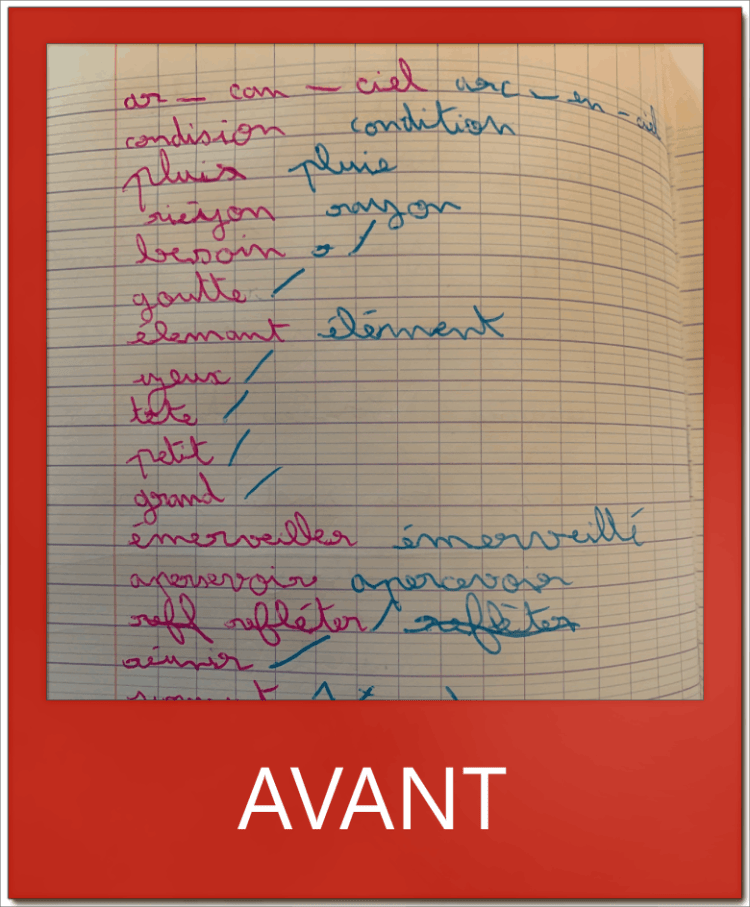 ar - can - ciel arc - en - ciel
condision condition
pluis pluie
rieyon rayon
besoin
goutte
élemant élément
yeux
tête
petit
grand
émerveiller émerveillé
apersevoir apercevoir
refl refléter refléter
réunir
AVANT